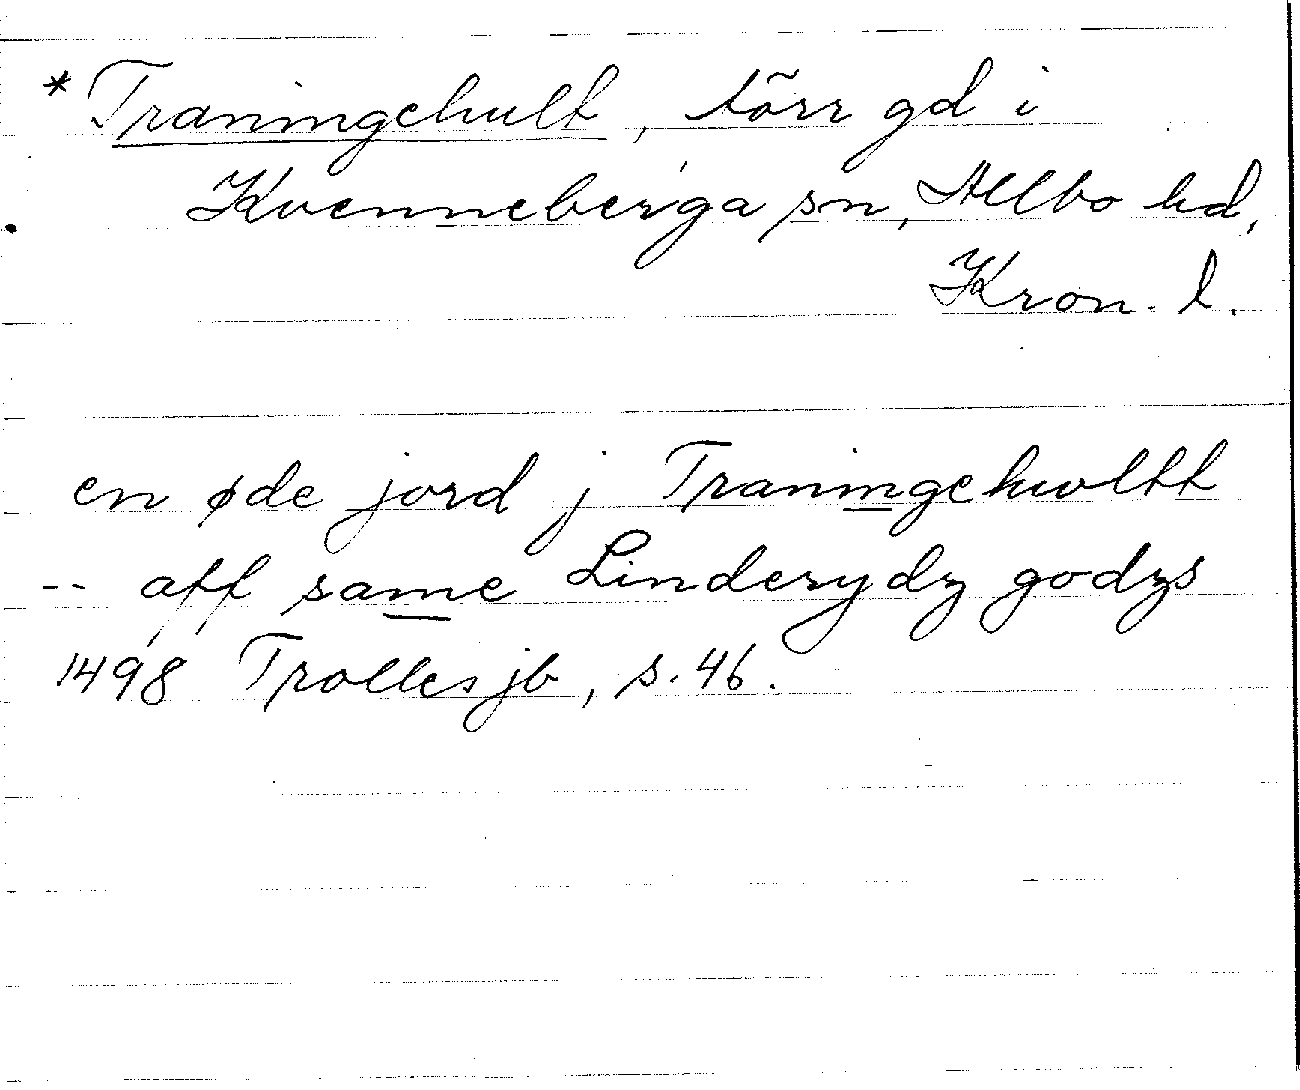 *Traningehult, törr gd i
Kvenneberga sn, Allbo hd,
Kron. l.
en øde jord j Traningehwltt
-- aff same Linderydz godzs
1498 Trolles jb, s. 46.